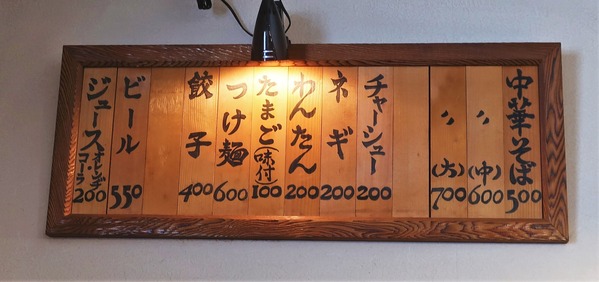 中華そば 500
〃 (中) 600
〃 (大) 700
チャーシュー 200
ネギ 200
わんたん 200
たまご(味付) 100
つけ麺 600
餃子 400
ビール 550
ジュース オレンヂ コーラ 200